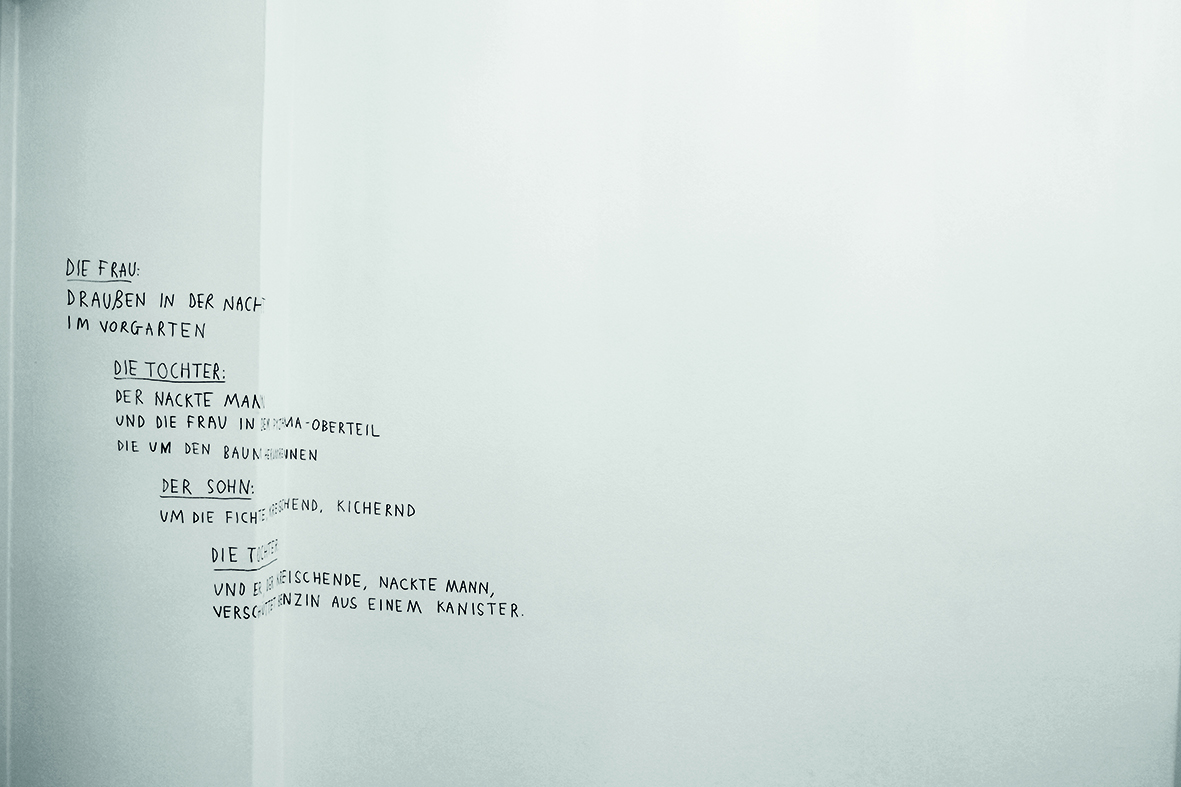 DIE FRAU:
DRAUßEN IN DER NACHT
IM VORGARTEN
DIE TOCHTER:
DER NACKTE MANN
UND DIE FRAU IN DEM PYJAMA-OBERTEIL
DIE UM DEN BAUM
DER SOHN:
UM DIE FICHTE, KREISCHEND, KICHERND
DIE TOCHTER
UND ER DER KREISCHENDE, NACKTE MANN,
VERSCHÜTTET BENZIN AUS EINEM KANISTER.